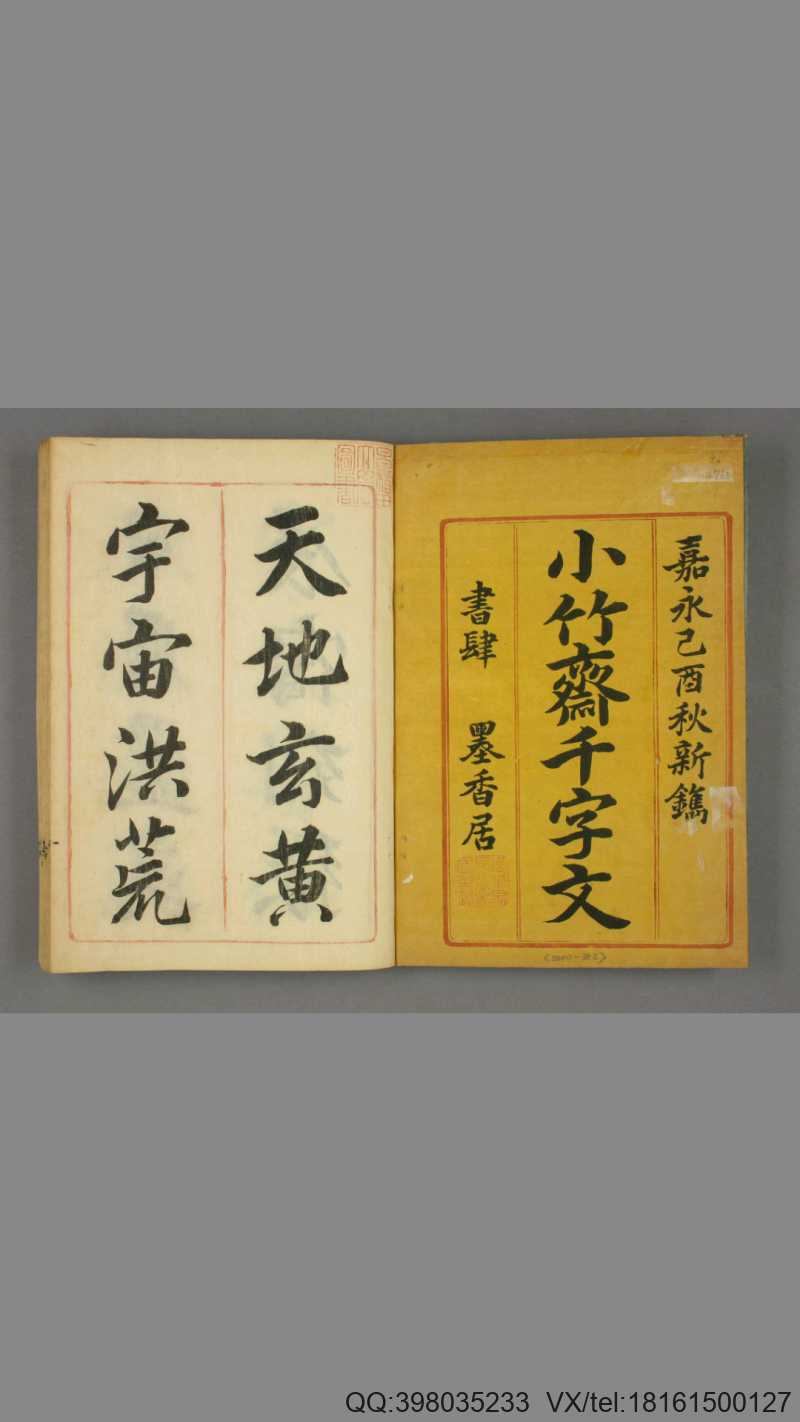 嘉永己酉秋新鐫
小竹齋千字文
書肆 墨香居
天地玄黄
宇宙洪荒
QQ:398035233 VX/tel:18161500127